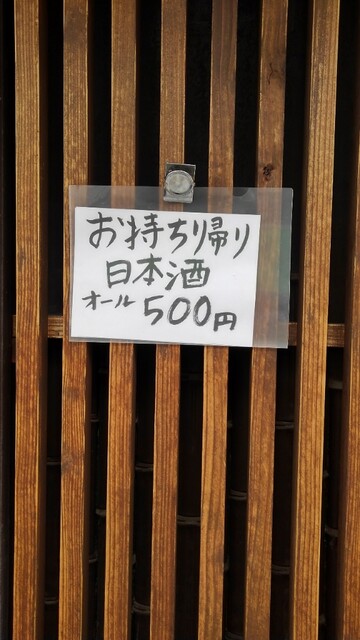 お持ち帰り
日本酒
オール500円